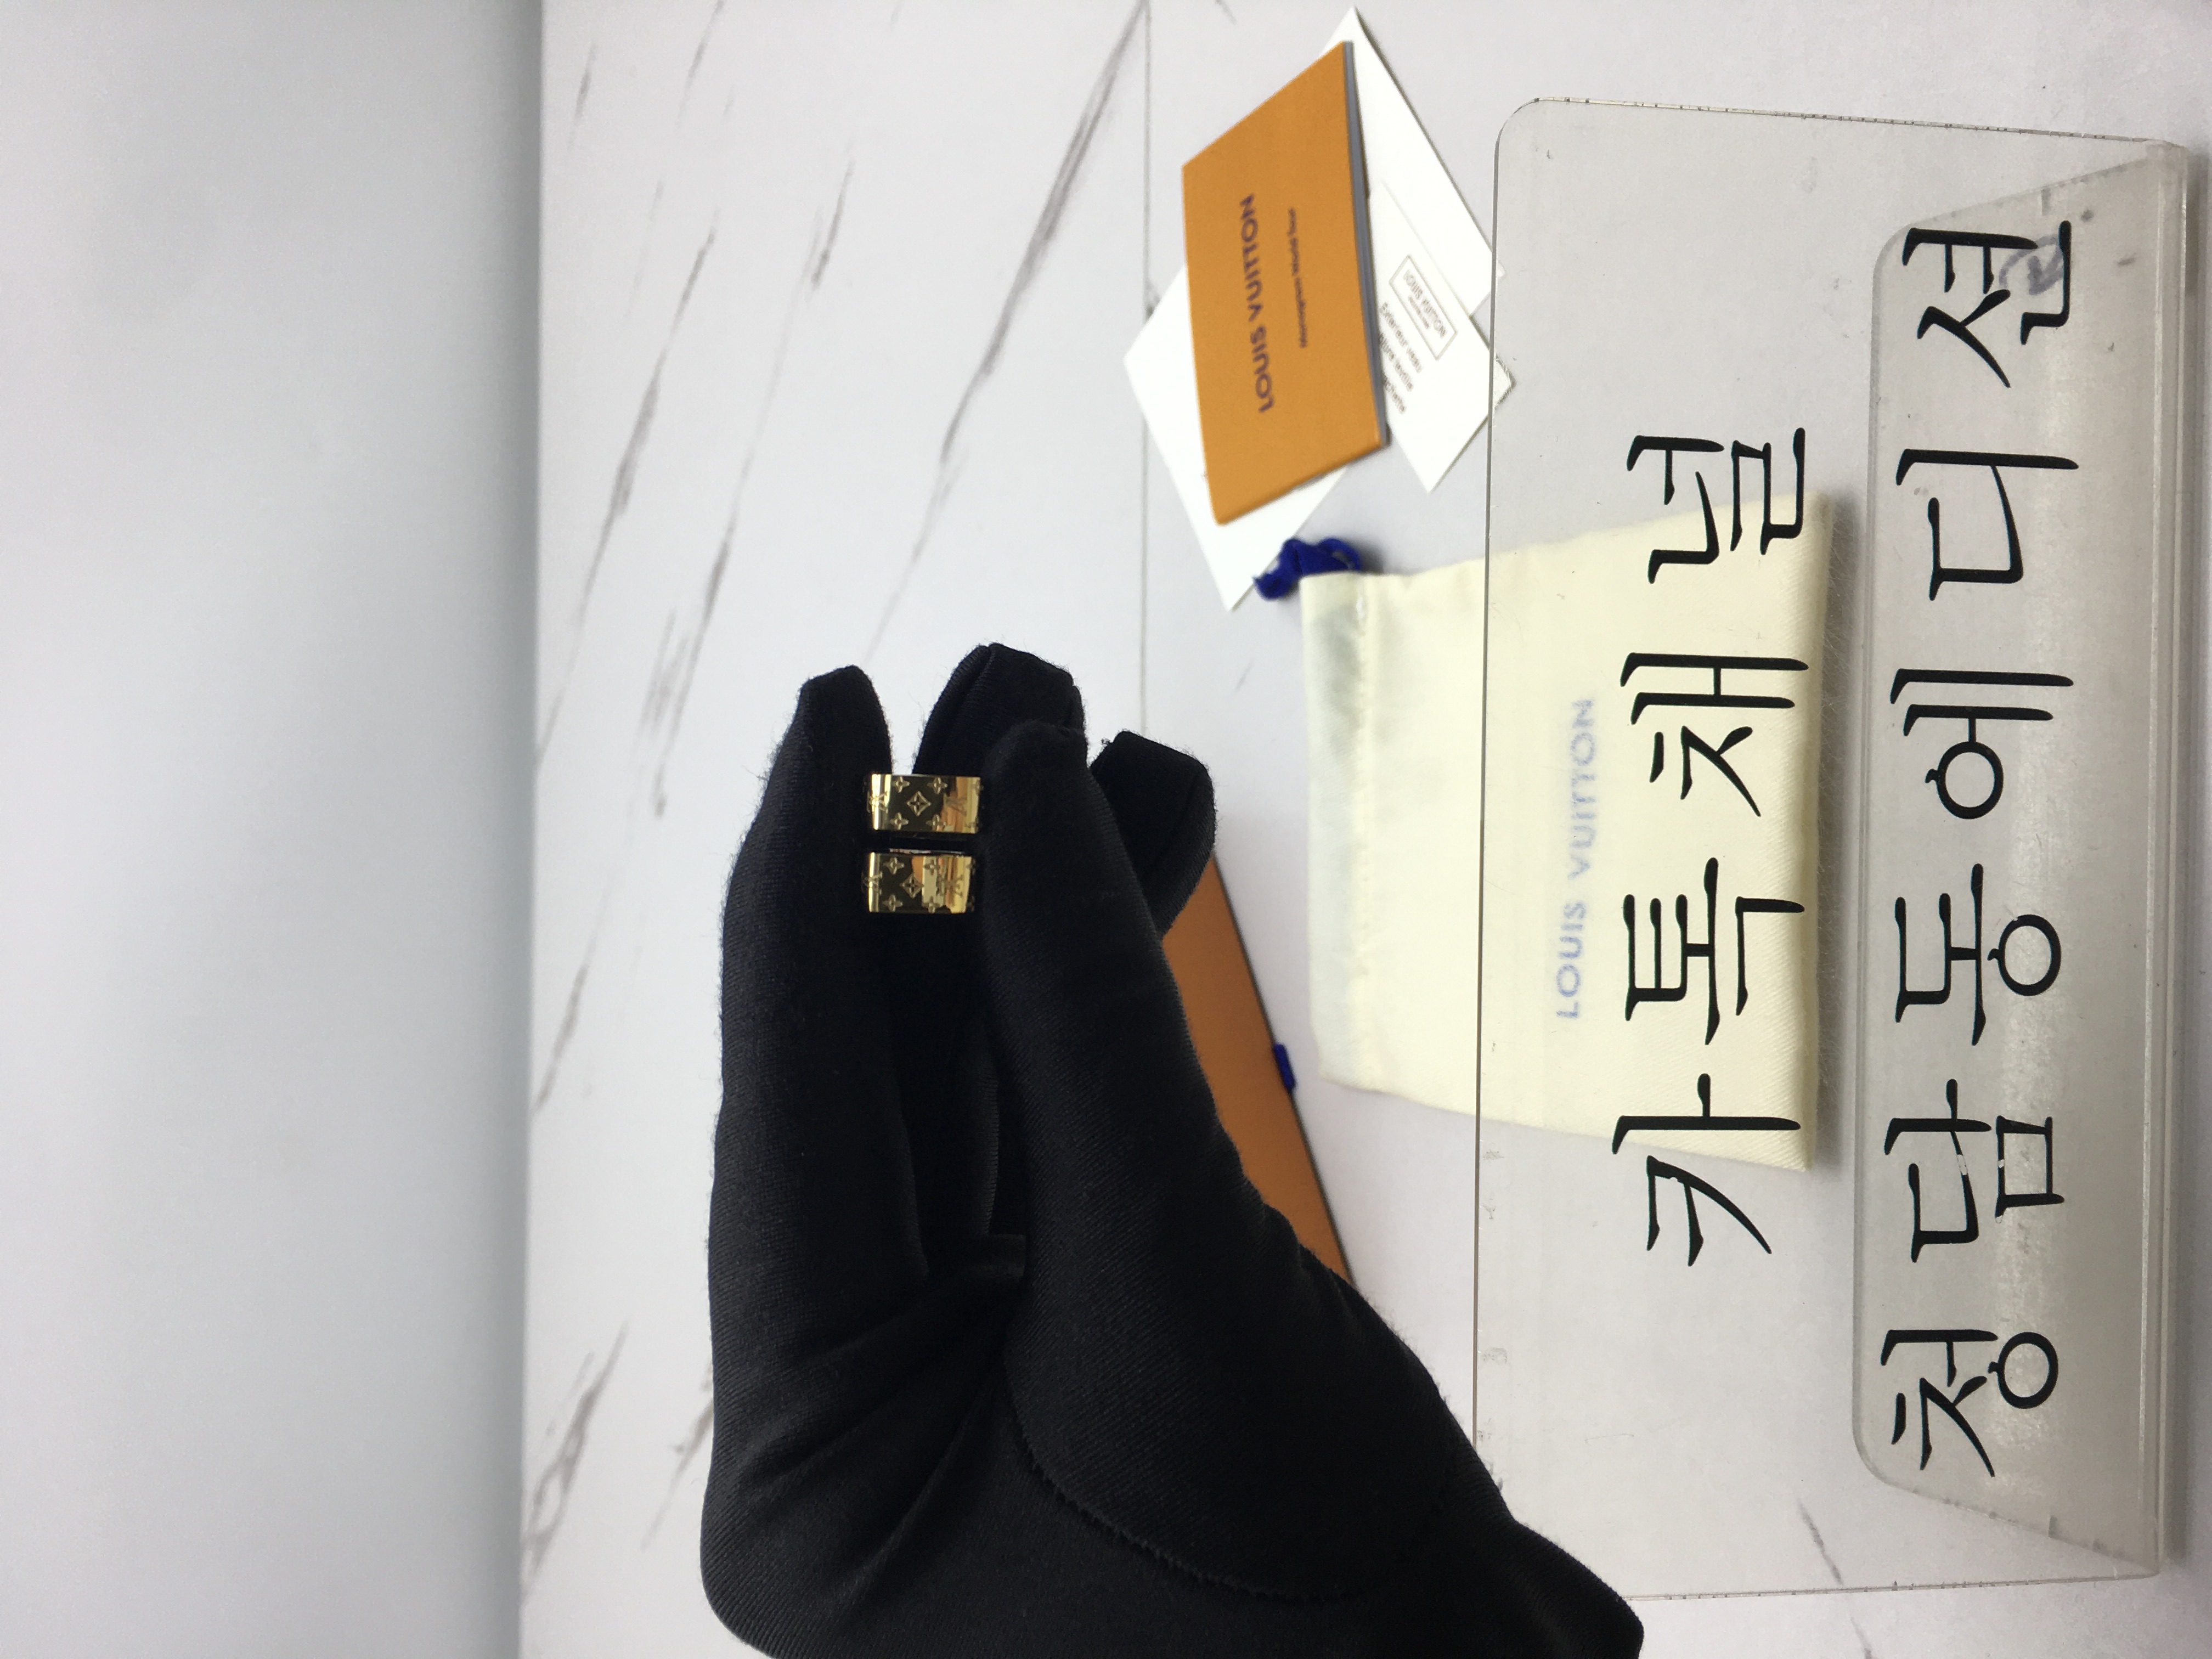 LOUIS VUITTON
Monogram World Tour
LOUIS VUITTON
LOUIS VUITTON
카톡채널
청담동에디션